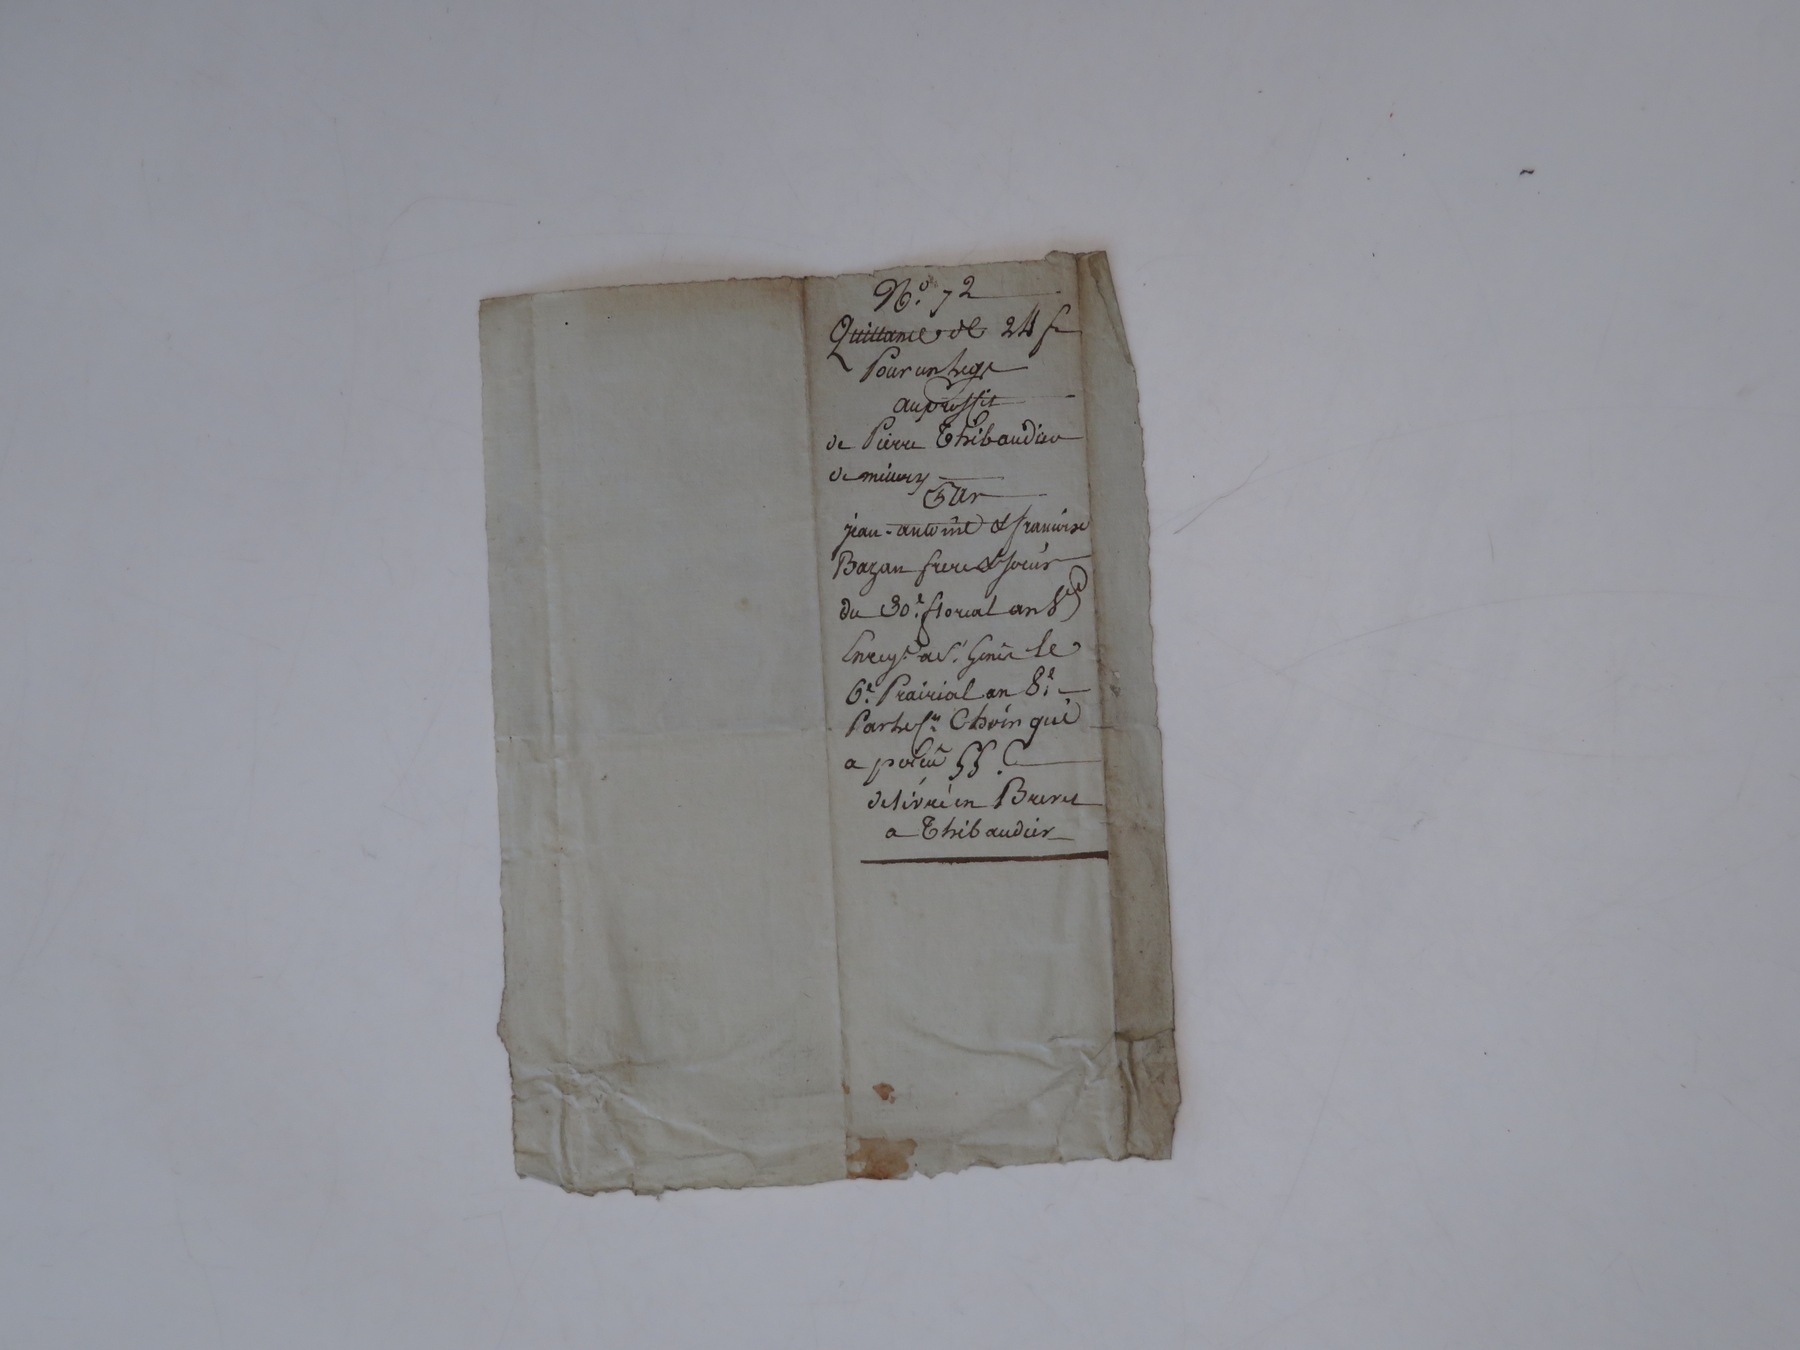 N.° 72
Quittance de 24 f
Pour un legs
au proffit
de Pierre Thibaudier
de millery
Par
jean-antoine & francoise
Bazan frere & soeur
du 30.e floreal an 8e
Enreg.r a S.t Genis le
6.e Prairial an 8.e
Par le C.en Choin qui
a percu 55. C
delivré en Brevet
a Thibaudier